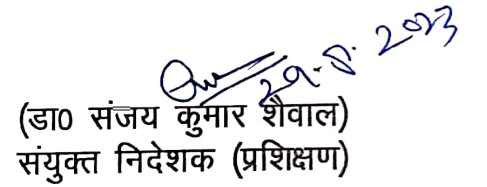 29.8.2023
(डा0 संजय कुमार शैवाल)
संयुक्त निदेशक (प्रशिक्षण)